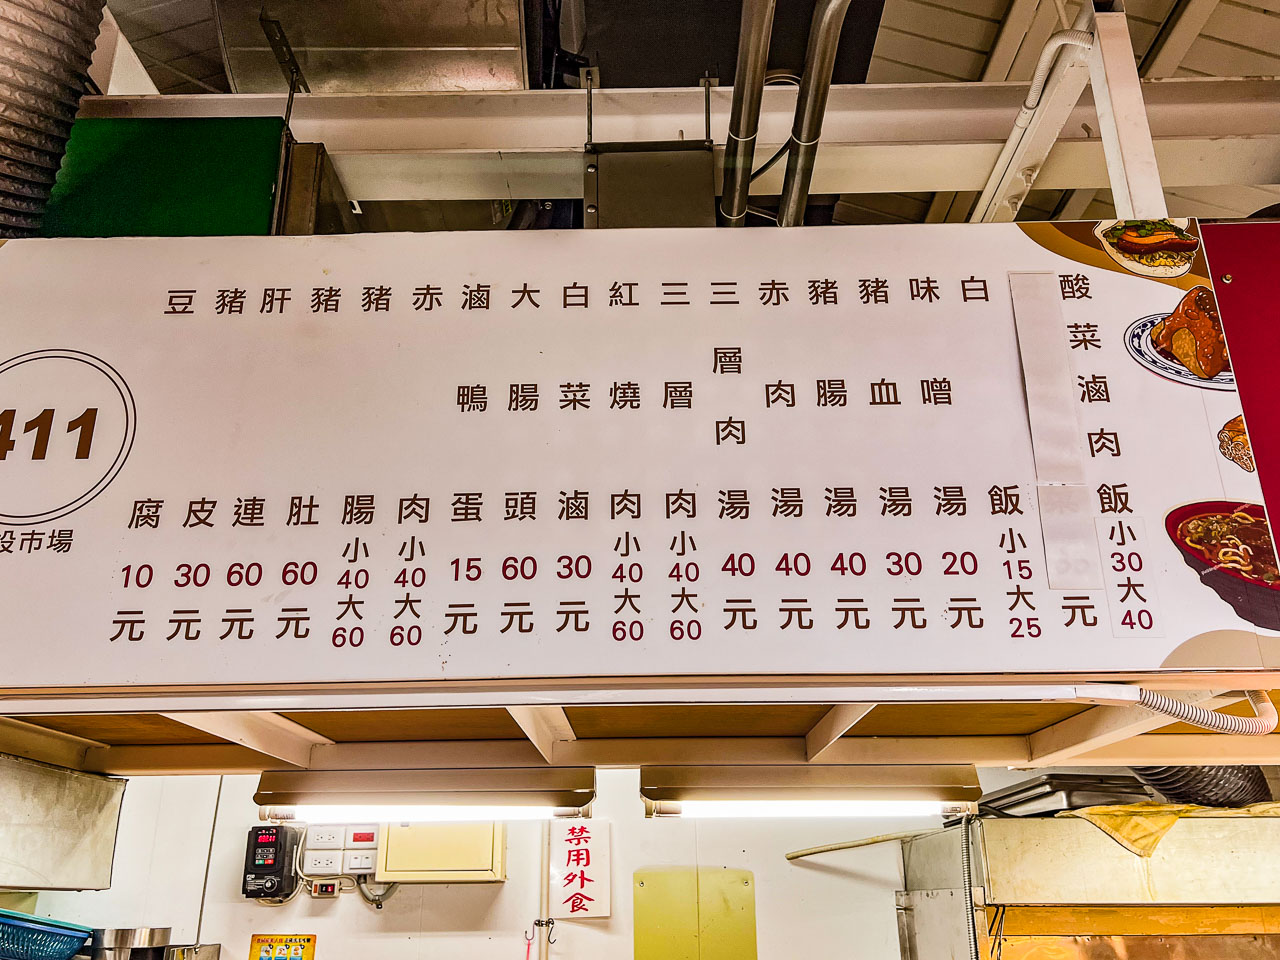 酸菜滷肉飯小30大40
元
白飯小15大25
味噌湯20元
豬血湯30元
豬腸湯40元
赤肉湯40元
三層肉湯40元
三層肉小40大60
紅燒肉小40大60
白菜滷30元
大腸頭60元
滷鴨蛋15元
赤肉小40大60
豬腸小40大60
豬肚60元
肝連60元
豬皮30元
豆腐10元
411
設市場
禁用外食